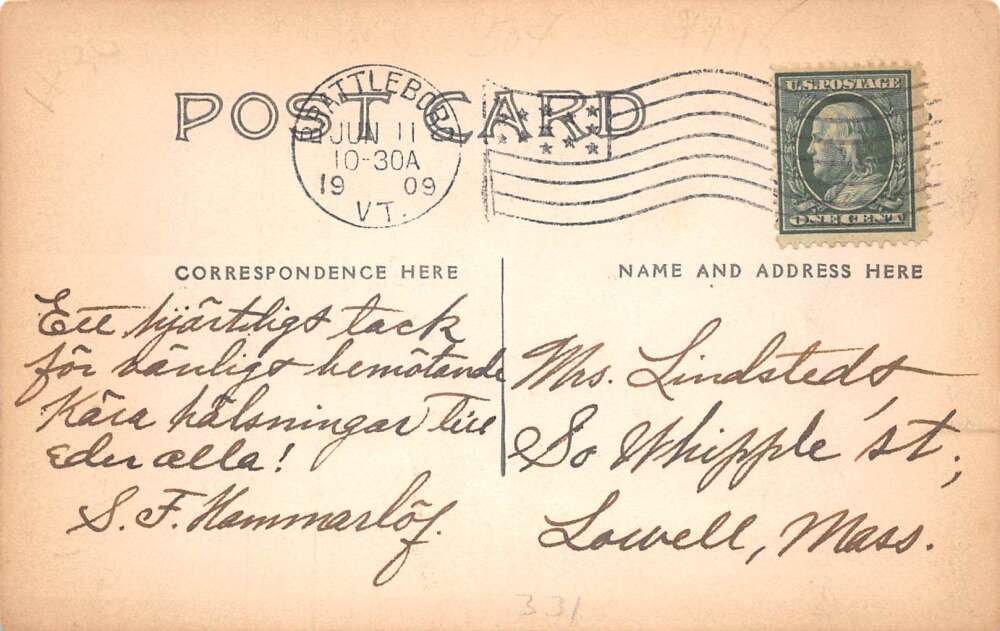 POST CARD
BRATTLEBORO
JUN 11
10-30A
19 09
VT.
U.S. POSTAGE
ONE CENT
CORRESPONDENCE HERE
NAME AND ADDRESS HERE
Ett hjärtligt tack
för vänligt bemötande
Kära hälsningar till
Eder alla!
S. F. Hammarlöf.
Mrs. Lindstedt
So Whipple st,
Lowell, Mass.
331